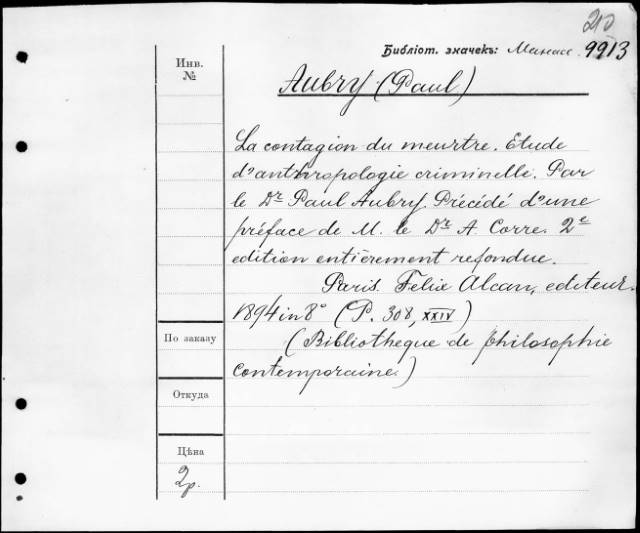 210
Библіот. значекъ: Манасс. 9913
Инв. №
Aubry (Paul)
La contagion du meurtre. Etude
d'anthropologie criminelle. Par
le Dr. Paul Aubry. Précédé d'une
préface de M. le Dr. A. Corre. 2e
edition entièrement refondue.
Paris. Felix Alcan, editeur.
1894 in 8° (P. 308, XXIV)
По заказу
(Bibliotheque de philosophie
contemporaine.)
Откуда
Цѣна
2р.